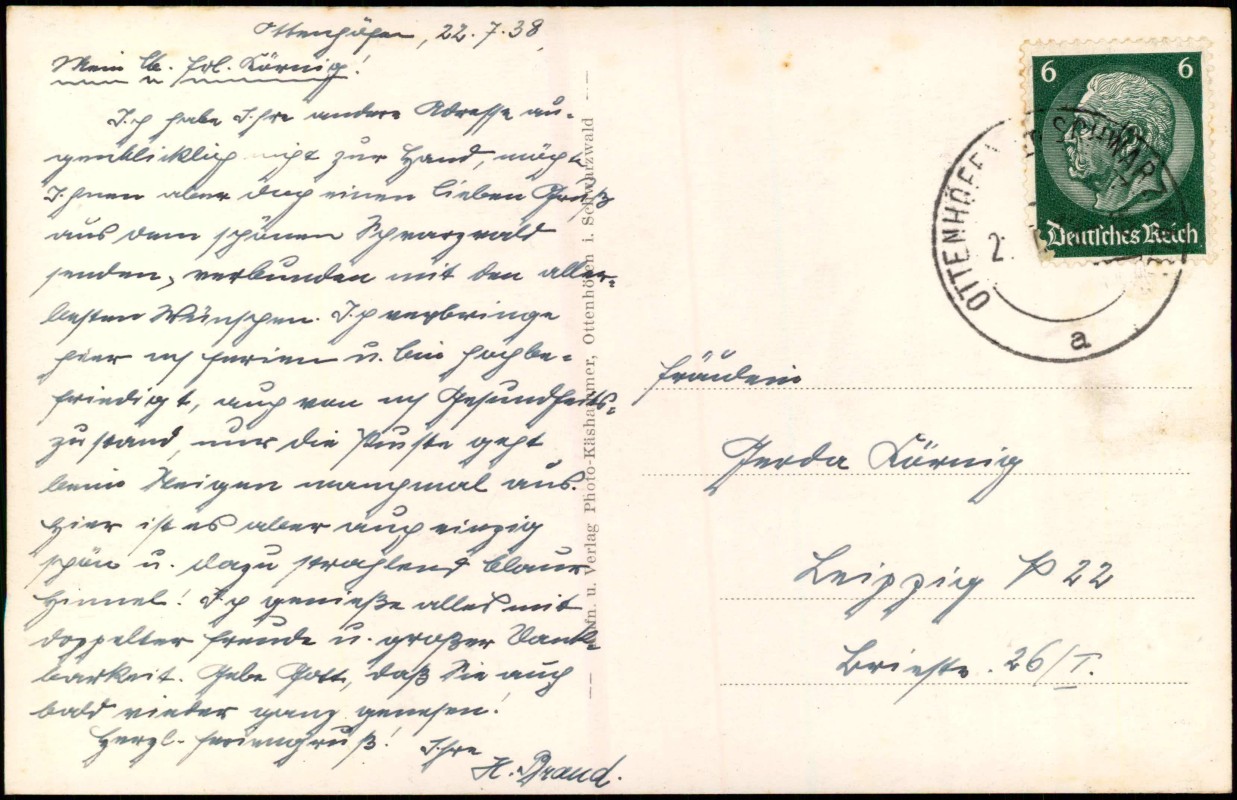 Ottenhöfen, 22.7.38,
Mein lb. Frl. Körnig!
Ich habe Ihre andere Adresse au-
genblicklich nicht zur Hand, möcht
Ihnen aber doch einen lieben Gruß
aus dem schönen Schwarzwald
senden, verbunden mit den aller-
besten Wünschen. Ich verbringe
hier m/ Ferien u. bin hochbe-
friedigt, auch von m/ Gesundheits-
zustand, nur die Puste geht
beim Steigen manchmal aus.
Hier ist es aber auch einzig
schön u. dazu strahlend blauer
Himmel! Ich genieße alles mit
doppelter Freude u. großer Dank-
barkeit. Gebe Gott, daß Sie auch
bald wieder ganz genesen!
Herzl. Feriengruß! Ihre
H. Brand.
Aufn. u. Verlag Photo-Käshammer, Ottenhöfen i. Schwarzwald
6 6
Deutsches Reich
OTTENHÖFEN
SCHWARZ
a
Fräulein
Gerda Körnig
Leipzig N 22
Briefstr. 26/I.